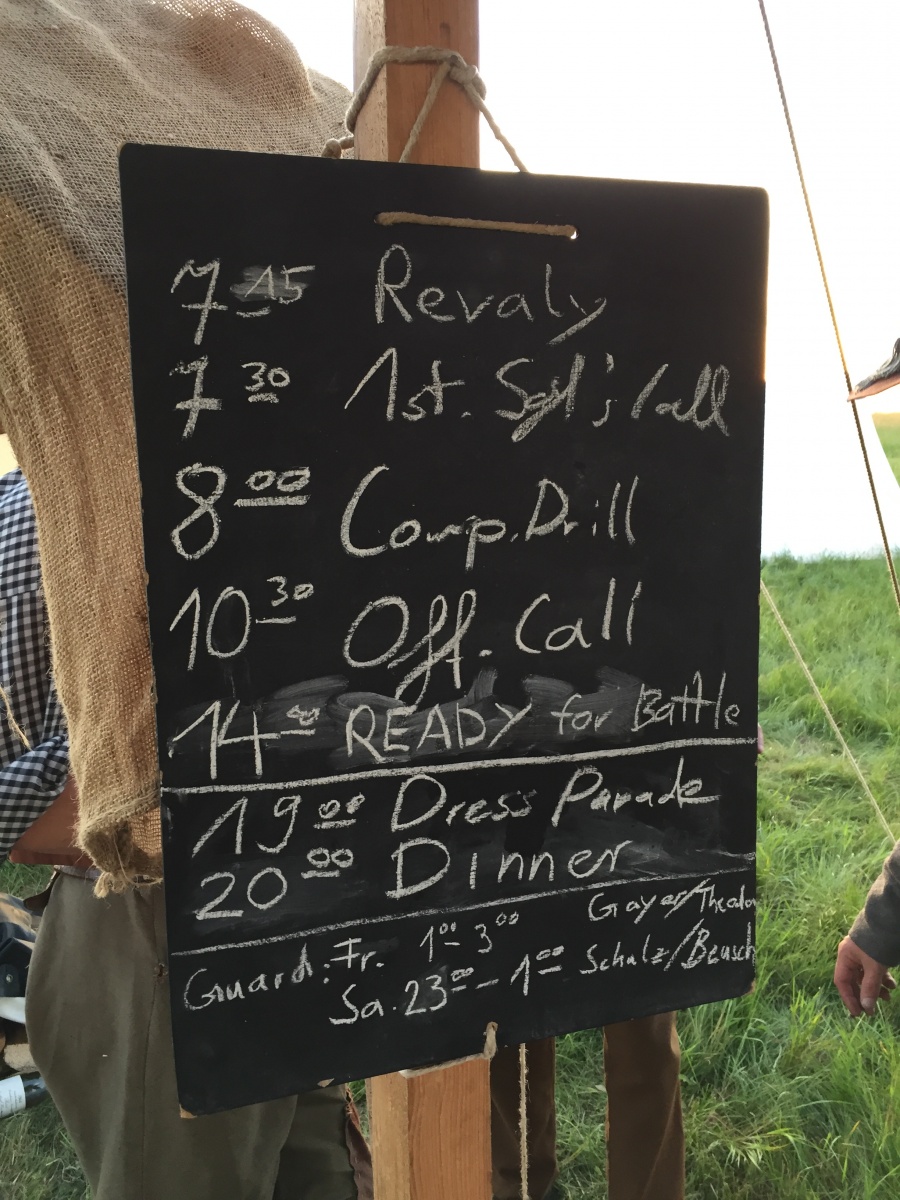 7 15 Revaly
7 30 1st. Sgt's Call
8 00 Comp. Drill
10 30 Off. Call
14 00 READY for Battle
19 00 Dress Parade
20 00 Dinner
Guard: Fr. 1 00 - 3 00 Gayer/
Sa. 23 00 - 1 00 Schulz/Beusch